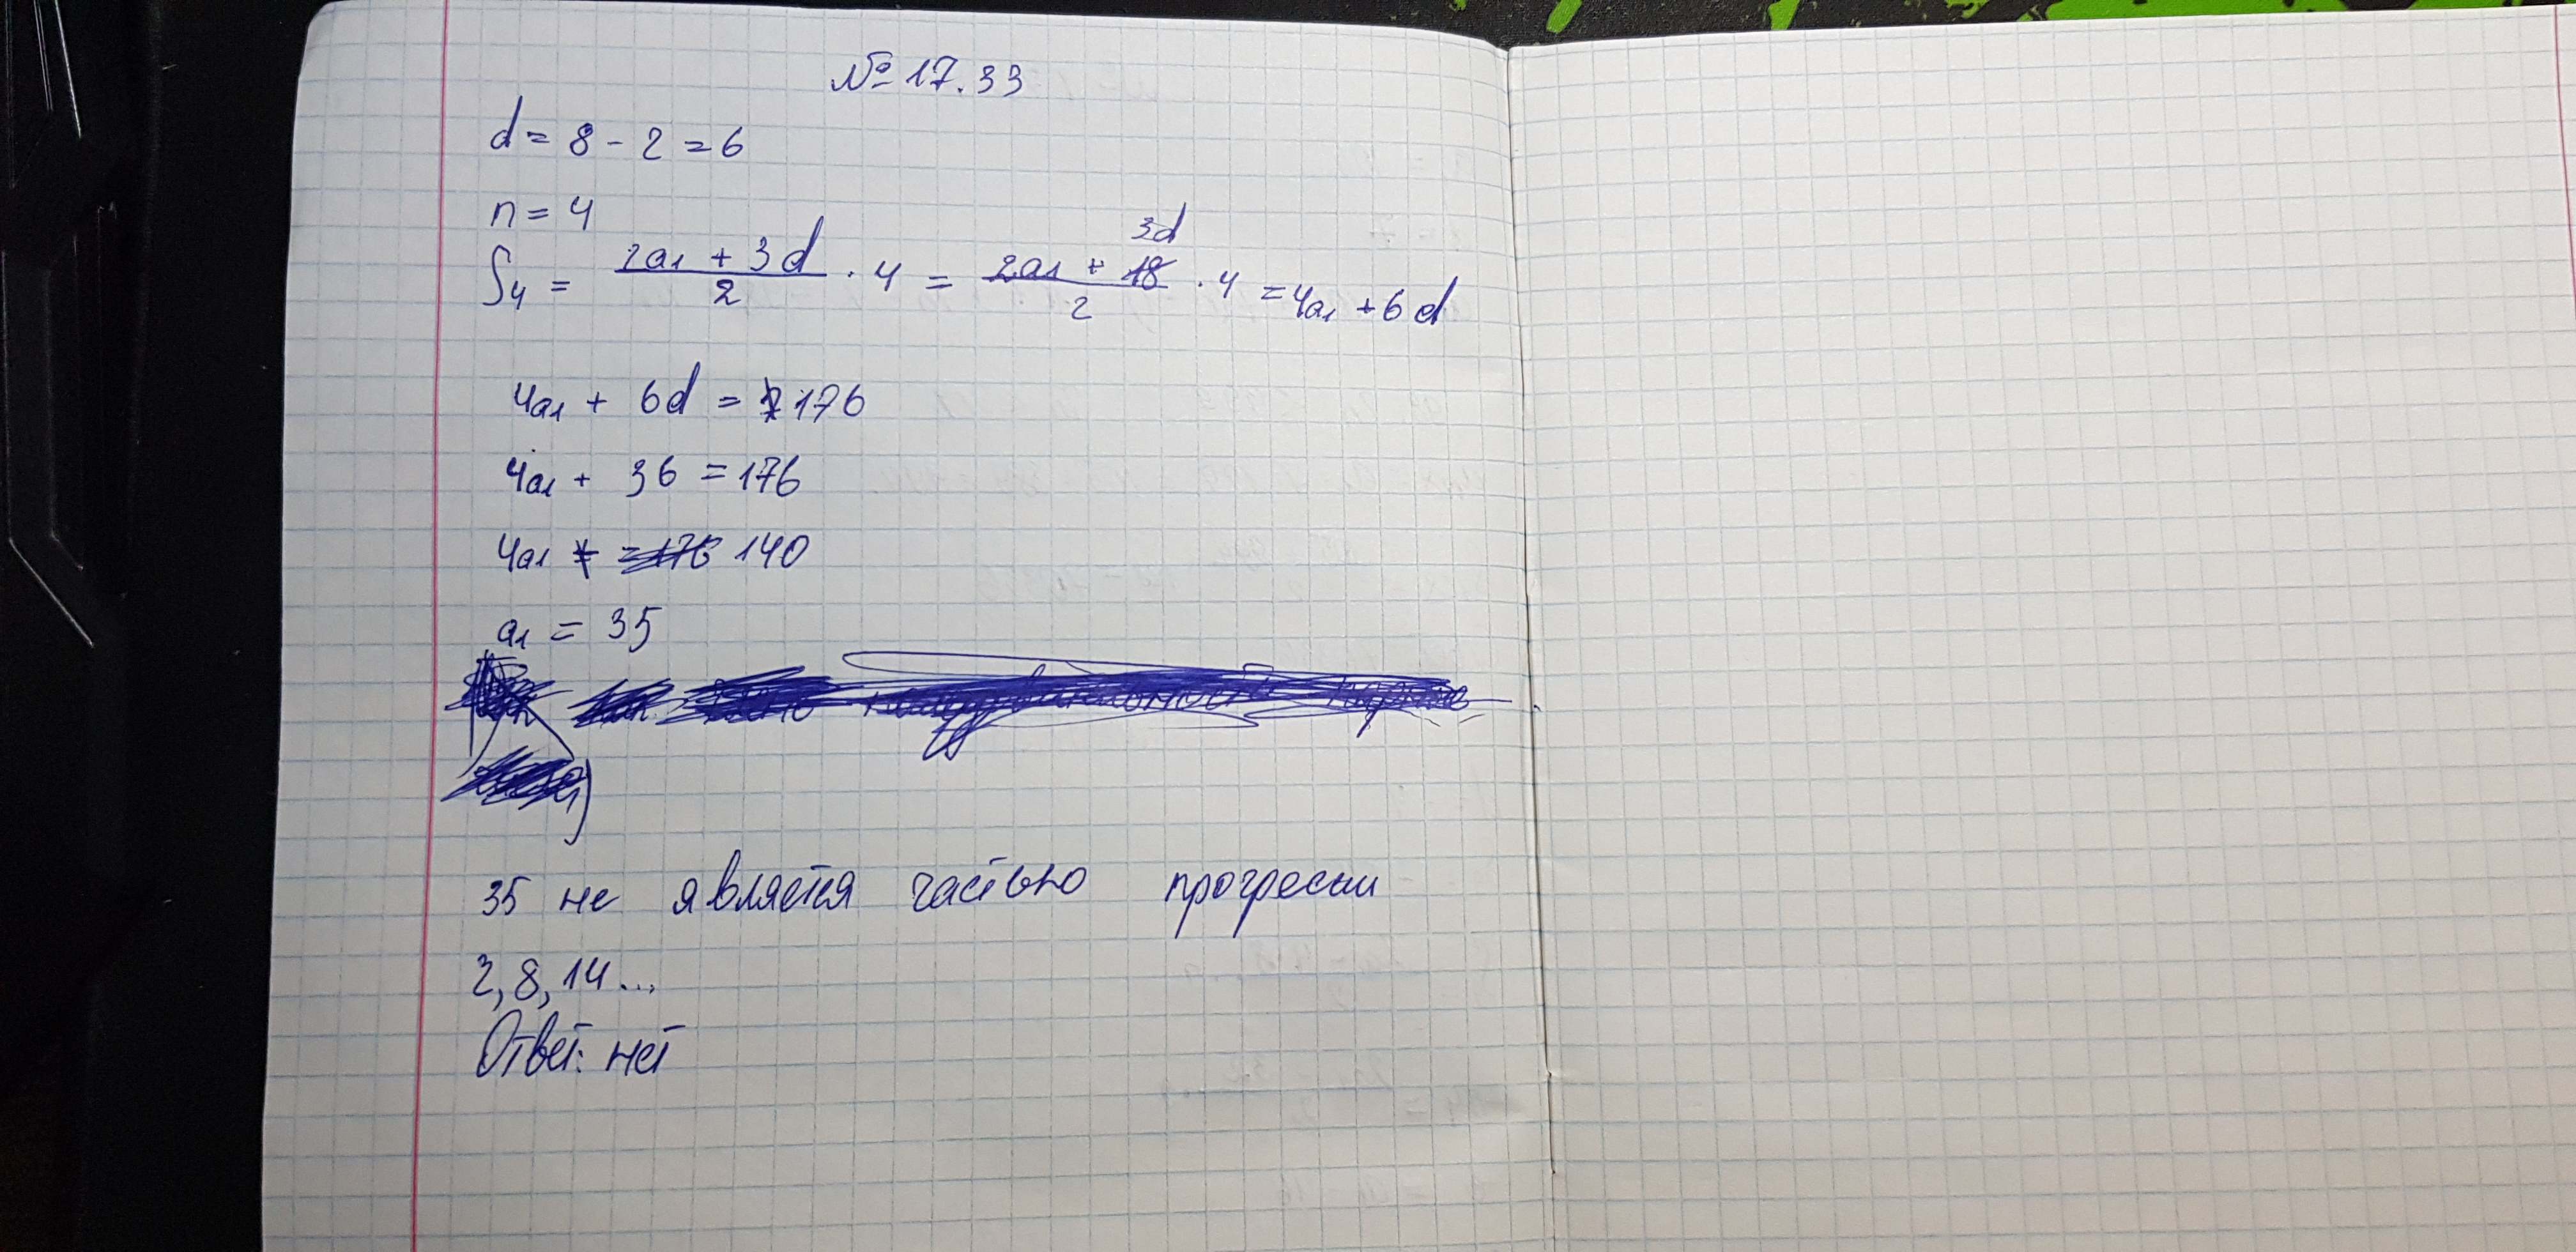 № 17.33
d = 8 - 2 = 6
n = 4
S₄ = (2a₁ + 3d)/2 · 4 = (2a₁ + 3d)/2 · 4 = 4a₁ + 6d
4a₁ + 6d = 176
4a₁ + 36 = 176
4a₁ = 140
a₁ = 35
35 не является частью прогресии
2, 8, 14...
Ответ: нет